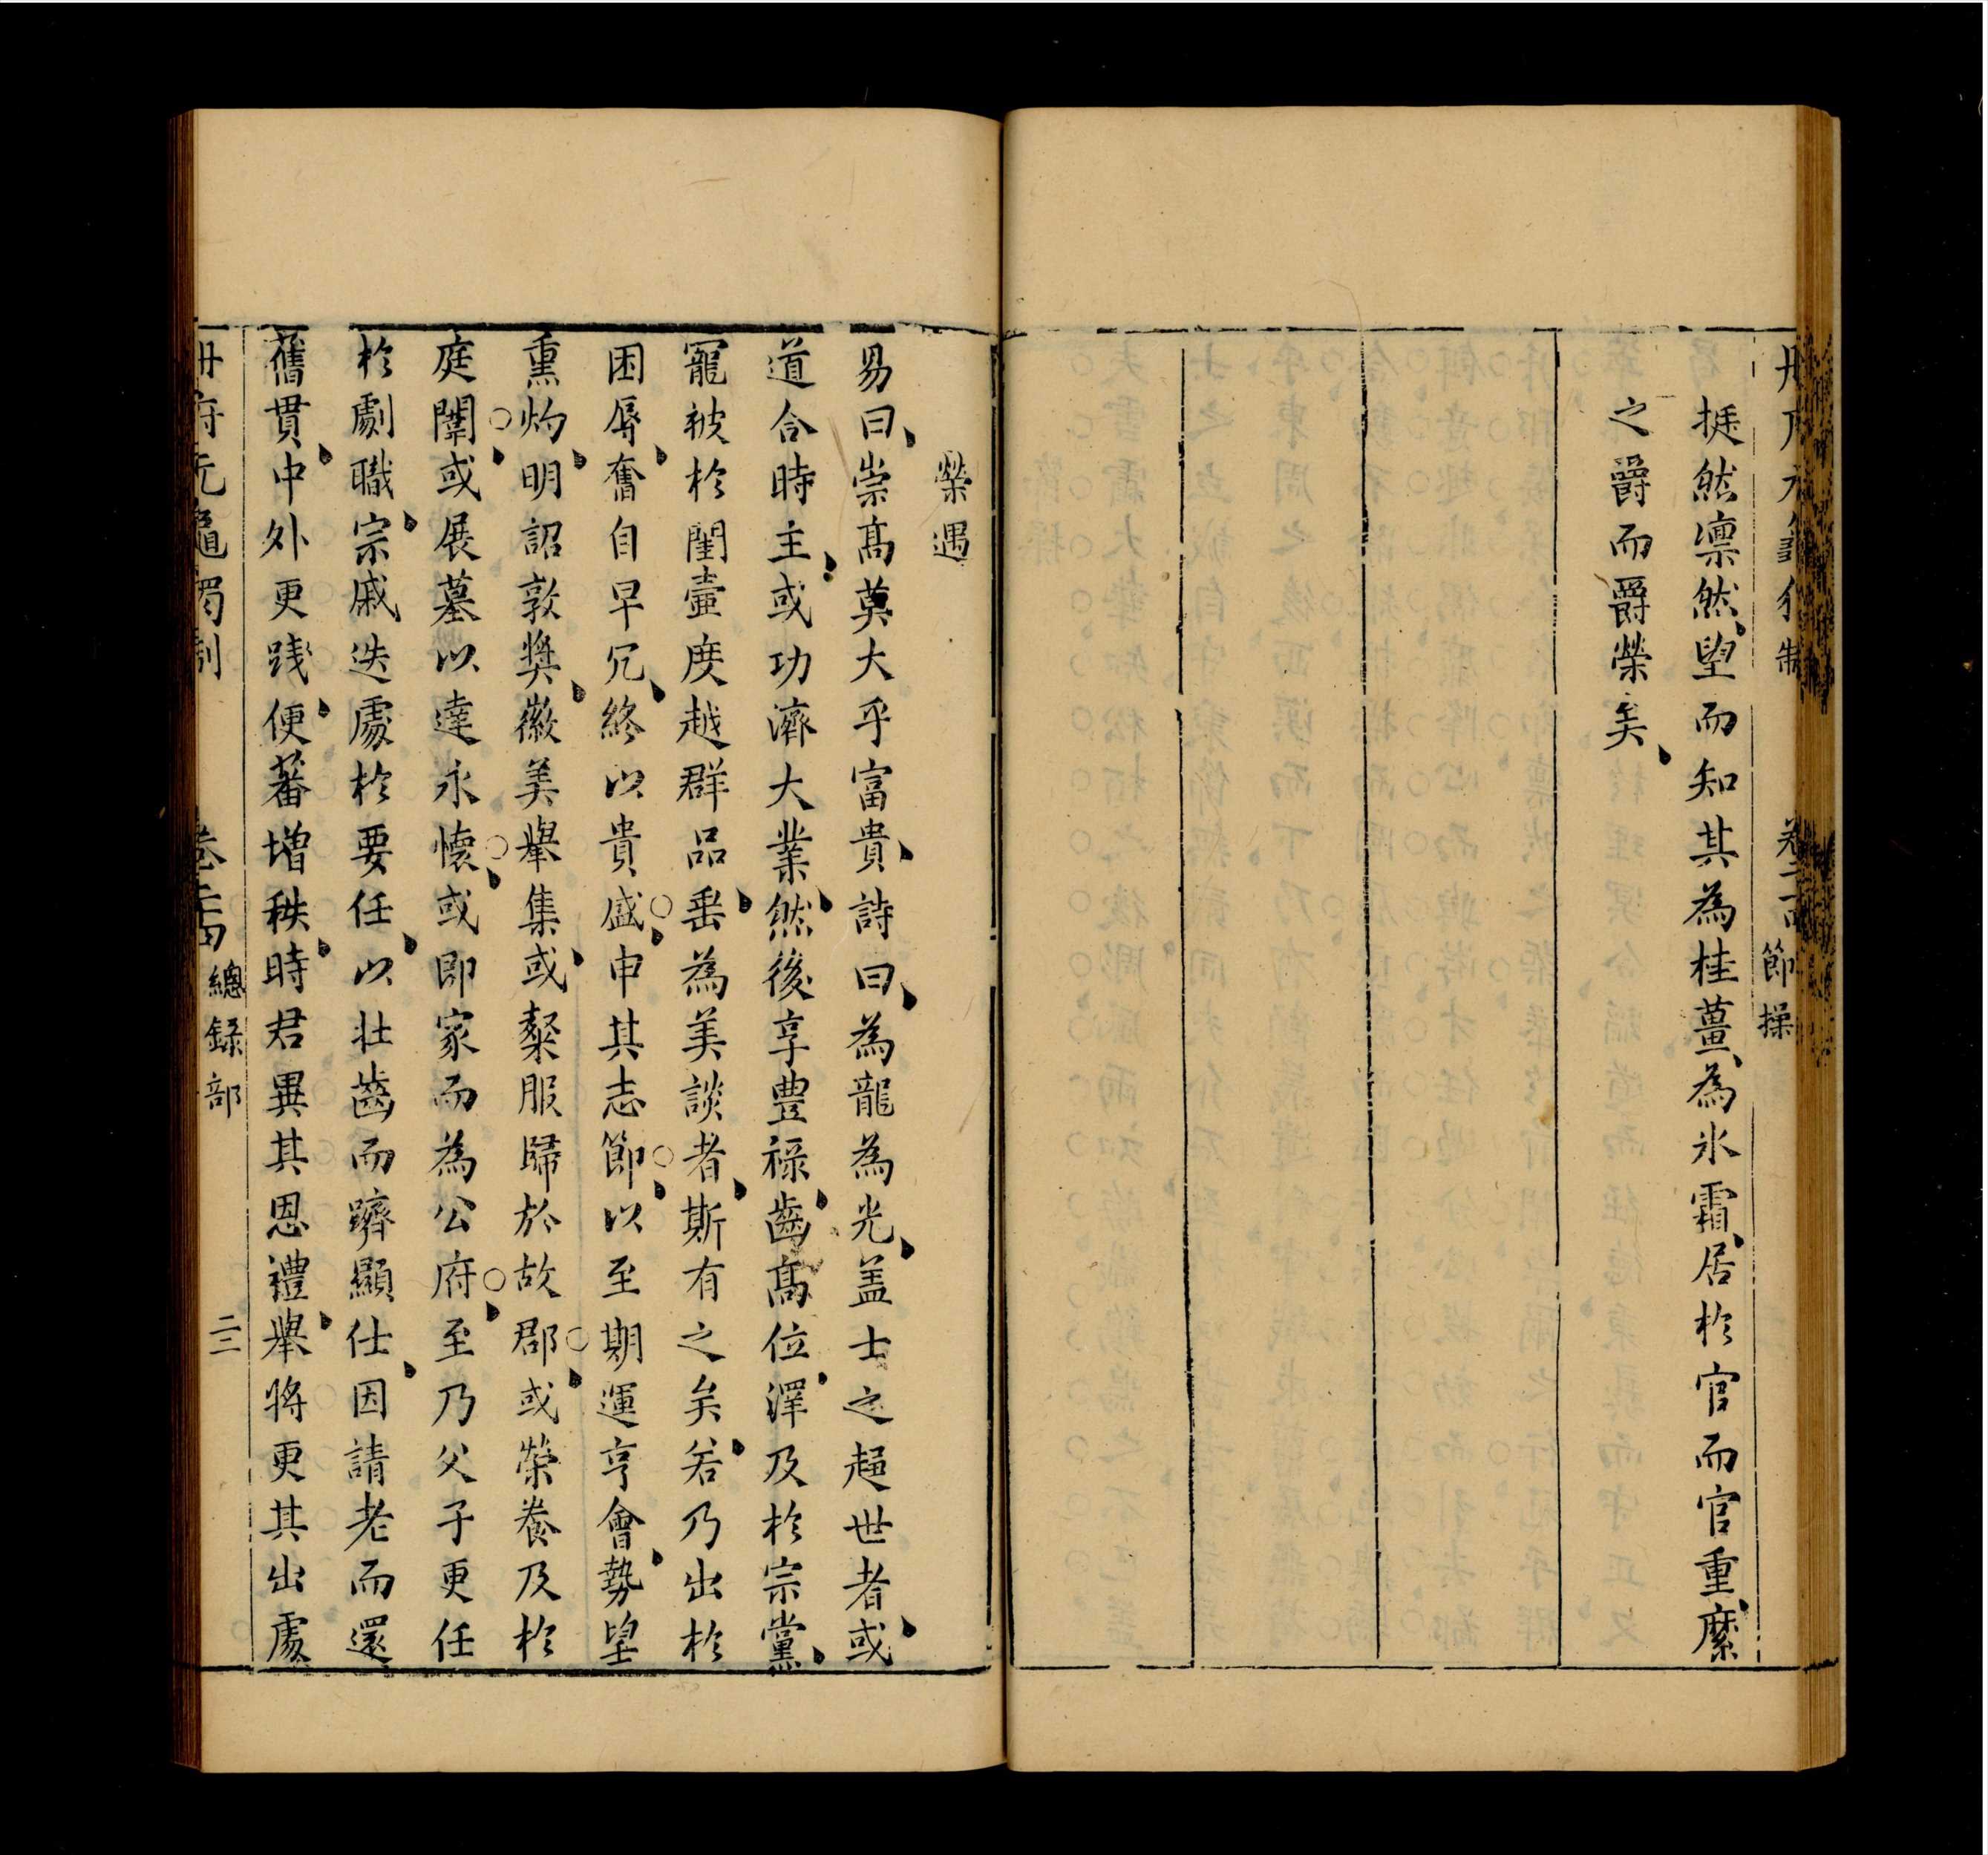 挺然凛然望而知其為桂薑為氷霜居於官而官重縻
之爵而爵榮矣
節操
榮遇
易曰崇髙莫大乎富貴詩曰為龍為光盖士之趍世者或
道合時主或功濟大業然後享豊禄齒髙位澤及於宗黨
寵被於閨壼度越群品乗為美談者斯有之矣若乃出於
困辱奮自早冗終以貴盛申其志節以至期運亨會勢望
熏灼明詔敦奬徽美舉集或粲服歸於故郡或榮養及於
庭闈或展墓以達永懐或即家而為公府至乃父子更任
於劇職宗戚迭處於要任以壮齒而躋顯仕因請老而還
舊貫中外更踐便蕃增秩時君異其恩禮舉將更其出處
冊府元龜獨制 卷二十四 總録部 二三